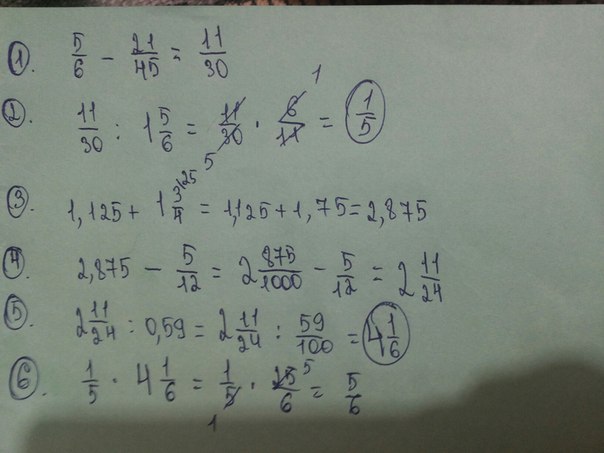 1. 5/6 - 21/45 = 11/30
2. 11/30 : 1 5/6 = 11/30 · 6/11 = 1/5
1
5
3. 1,125 + 1 3/4 = 1,125 + 1,75 = 2,875
25
4. 2,875 - 5/12 = 2 875/1000 - 5/12 = 2 11/24
5. 2 11/24 : 0,59 = 2 11/24 : 59/100 = 4 1/6
6. 1/5 · 4 1/6 = 1/5 · 25/6 = 5/6
5
1